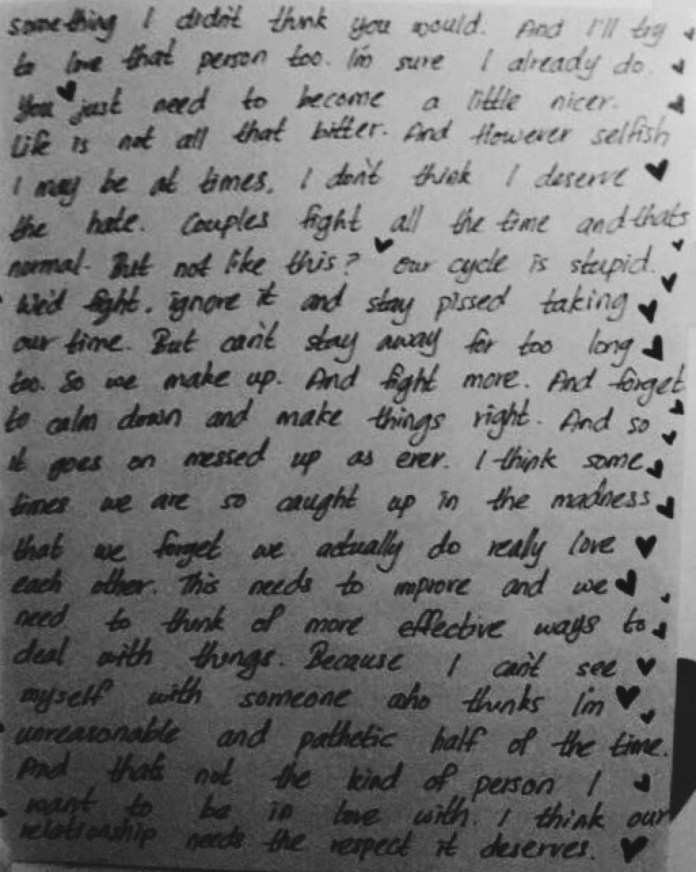 something I didn't think you would. And I'll try
to love that person too. I'm sure I already do.
You just need to become a little nicer.
Life is not all that bitter. And However selfish
I may be at times, I don't think I deserve
the hate. Couples fight all the time and thats
normal. But not like this? Our cycle is stupid.
We'd fight, ignore it and stay pissed taking
our time. But can't stay away for too long
too. So we make up. And fight more. And forget
to calm down and make things right. And so
it goes on messed up as ever. I think some
times we are so caught up in the madness
that we forget we actually do really love
each other. This needs to improve and we
need to think of more effective ways to
deal with things. Because I can't see
myself with someone who thinks I'm
unreasonable and pathetic half of the time.
And thats not the kind of person I
want to be in love with. I think our
relationship needs the respect it deserves.